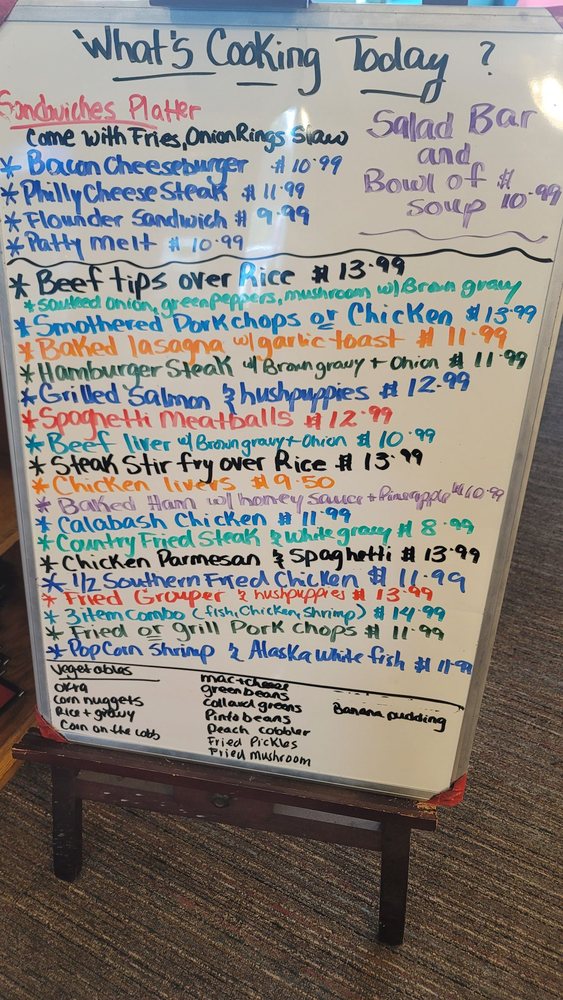 What's Cooking Today ?
Sandwiches Platter
Come with Fries, Onion Rings Slaw
* Bacon Cheeseburger $10.99
* Philly Cheese Steak $11.99
* Flounder Sandwich $9.99
* Patty melt $10.99
Salad Bar
and
Bowl of $
soup 10.99
* Beef tips over Rice $13.99
* sauteed onion, green peppers, mushroom w/ Brown gravy
* Smothered Pork chops or Chicken $13.99
* Baked lasagna w/ garlic toast $11.99
* Hamburger Steak w/ Brown gravy + Onion $11.99
* Grilled Salmon & hushpuppies $12.99
* Spaghetti Meatballs $12.99
* Beef liver w/ Brown gravy + Onion $10.99
* Steak Stir fry over Rice $13.99
* Chicken livers $9.50
* Baked Ham w/ honey sauce + Pineapple $10.99
* Calabash Chicken $11.99
* Country Fried Steak & white gravy $8.99
* Chicken Parmesan & Spaghetti $13.99
* 1/2 Southern Fried Chicken $11.99
* Fried Grouper & hushpuppies $13.99
* 3 item Combo (fish, Chicken, Shrimp) $14.99
* Fried or grill Pork chops $11.99
* PopCorn Shrimp & Alaska white fish $11.99
Vegetables
Okra
Corn nuggets
Rice + gravy
Corn on the cobb
mac + cheese
green beans
collard greens
Pinto beans
Peach cobbler
Fried Pickles
Fried mushroom
Banana pudding